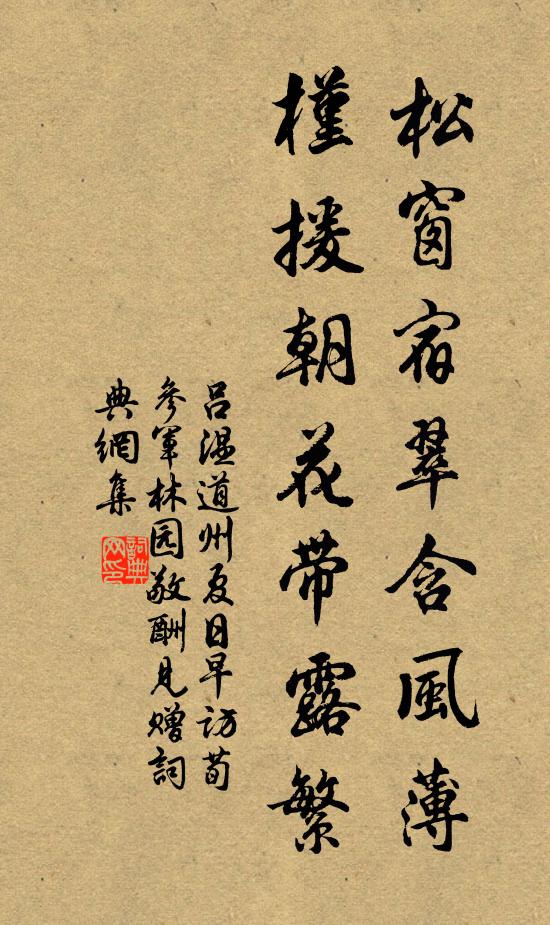 松窗宿翠含風薄
槿援朝花带露繁
吕温道州夏日早访荀
參軍林园敬酬見赠詞
典網集
詞典
网印